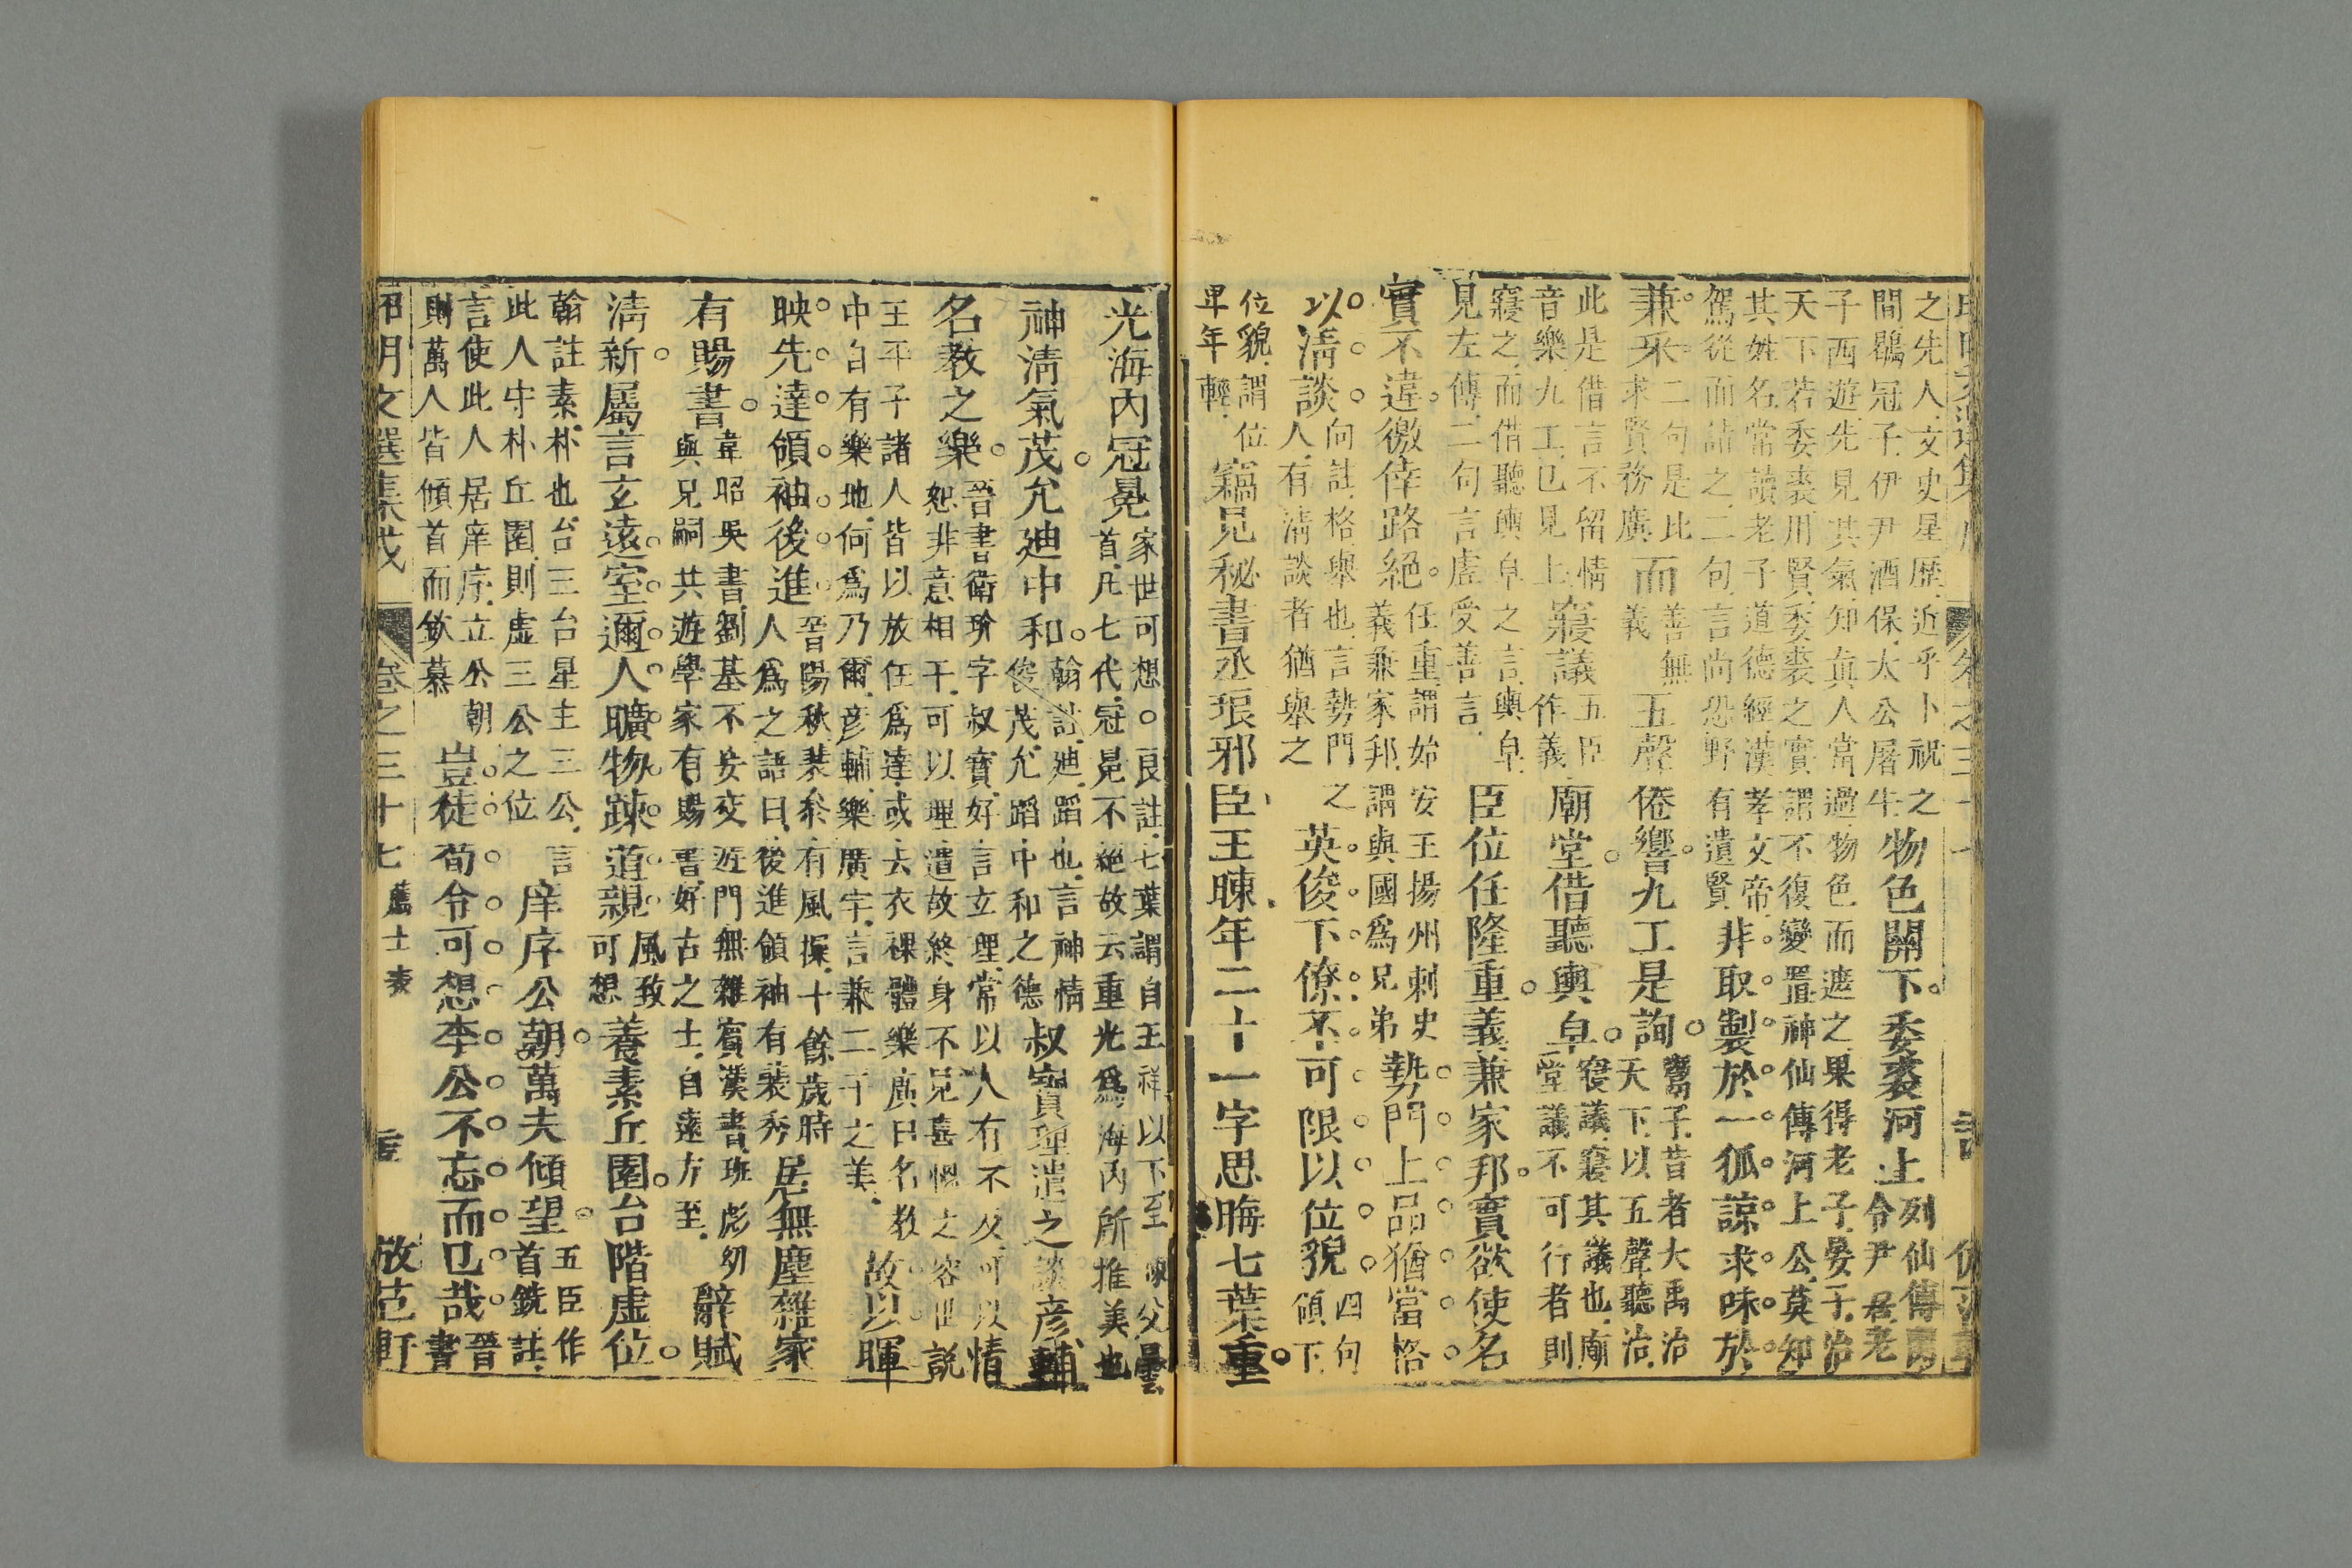 之先人文史星歷近乎卜祝之
間鶡冠子伊尹酒保太公屠牛
物色關下委裘河上
列仙傳
令尹
君老
子西遊先見其氣知真人當過物色而遮之果得老子晏子治
天下若委裘用賢委裘之實謂不復變置神仙傳河上公莫知
其姓名常讀老子道德經漢孝文帝
駕從而詰之二句言尚恐野有遺賢
非取製於一狐諒求味於
兼采
二句是比
求賢務廣
而
善無
義
五聲倦響九工是詢
鬻子昔者大禹治
天下以五聲聽治
此是借言不留情
音樂九工已見上
寢議
五臣
作義
廟堂借聽輿皁
寢議寢其議也廟
堂議不可行者則
寢之而借聽輿皁之言輿皁
見左傳二句言虛受善言
臣位任隆重義兼家邦實欲使名
實不違徼倖路絕
任重謂始安王揚州刺史
義兼家邦謂與國為兄弟
勢門上品猶當格
以清談
向註格舉也言勢門之
人有清談者猶舉之
英俊下僚不可限以位貌
四句
傾下
位貌謂位
卑年輕
竊見秘書丞琅邪臣王暕年二十一字思晦七葉重
光海內冠冕
家世可想○良註七葉謂自王祥以下至暕父曇
首凡七代冠冕不絕故云重光為海內所推美也
神清氣茂允迪中和
翰註迪蹈也言神情
俊茂允蹈中和之德
叔寶理遣之談彥輔
名教之樂
晉書衛玠字叔寶好言立理常以人有不及可以情
恕非意相干可以理遣故終身不見喜慍之容世說
王平子諸人皆以放任為達或去衣裸體樂廣曰名教
中自有樂地何為乃爾彥輔樂廣字言兼二子之美
故以暉
映先達領袖後進
晉陽秋裴秀有風操十餘歲時
人為之語曰後進領袖有裴秀
居無塵雜家
有賜書
韋昭吳書劉基不妄交遊門無雜賓漢書班彪幼
與兄嗣共遊學家有賜書好古之士自遠方至
辭賦
清新屬言玄遠室邇人曠物踈道親
風致
可想
養素丘園台階虛位
翰註素朴也台三台星主三公言
此人守朴丘園則虛三公之位
庠序公朝萬夫傾望
五臣作
首銑註
言使此人居庠序立公朝
則萬人皆傾首而欽慕
豈徒荀令可想李公不忘而已哉
晉
書
昭明文選集成 卷之三十七 薦士表 放范軒